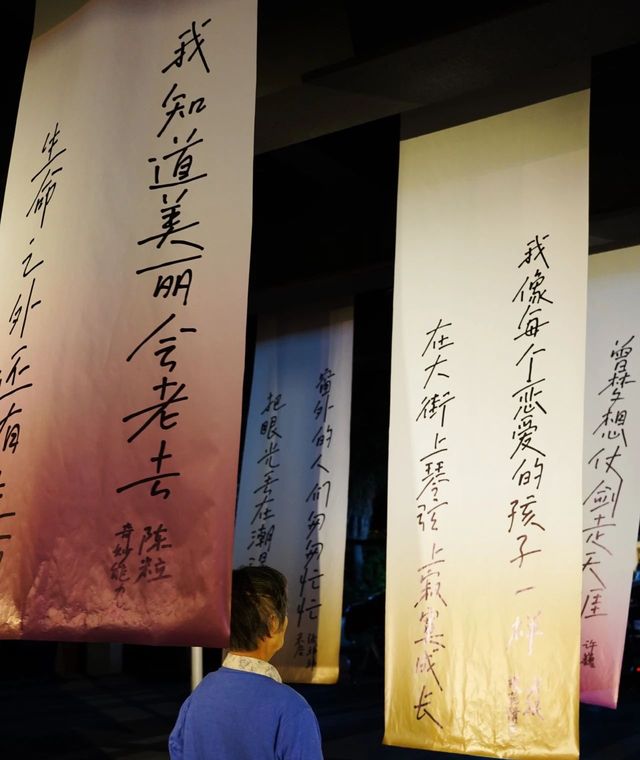 我知道美丽会老去
陈粒
奇妙能力
生命之外还有
窗外的人们匆匆忙忙
把眼光丢在潮
我像每个恋爱的孩子一样
在大街上琴弦上寂寞成长
曾梦想仗剑走天涯
许巍